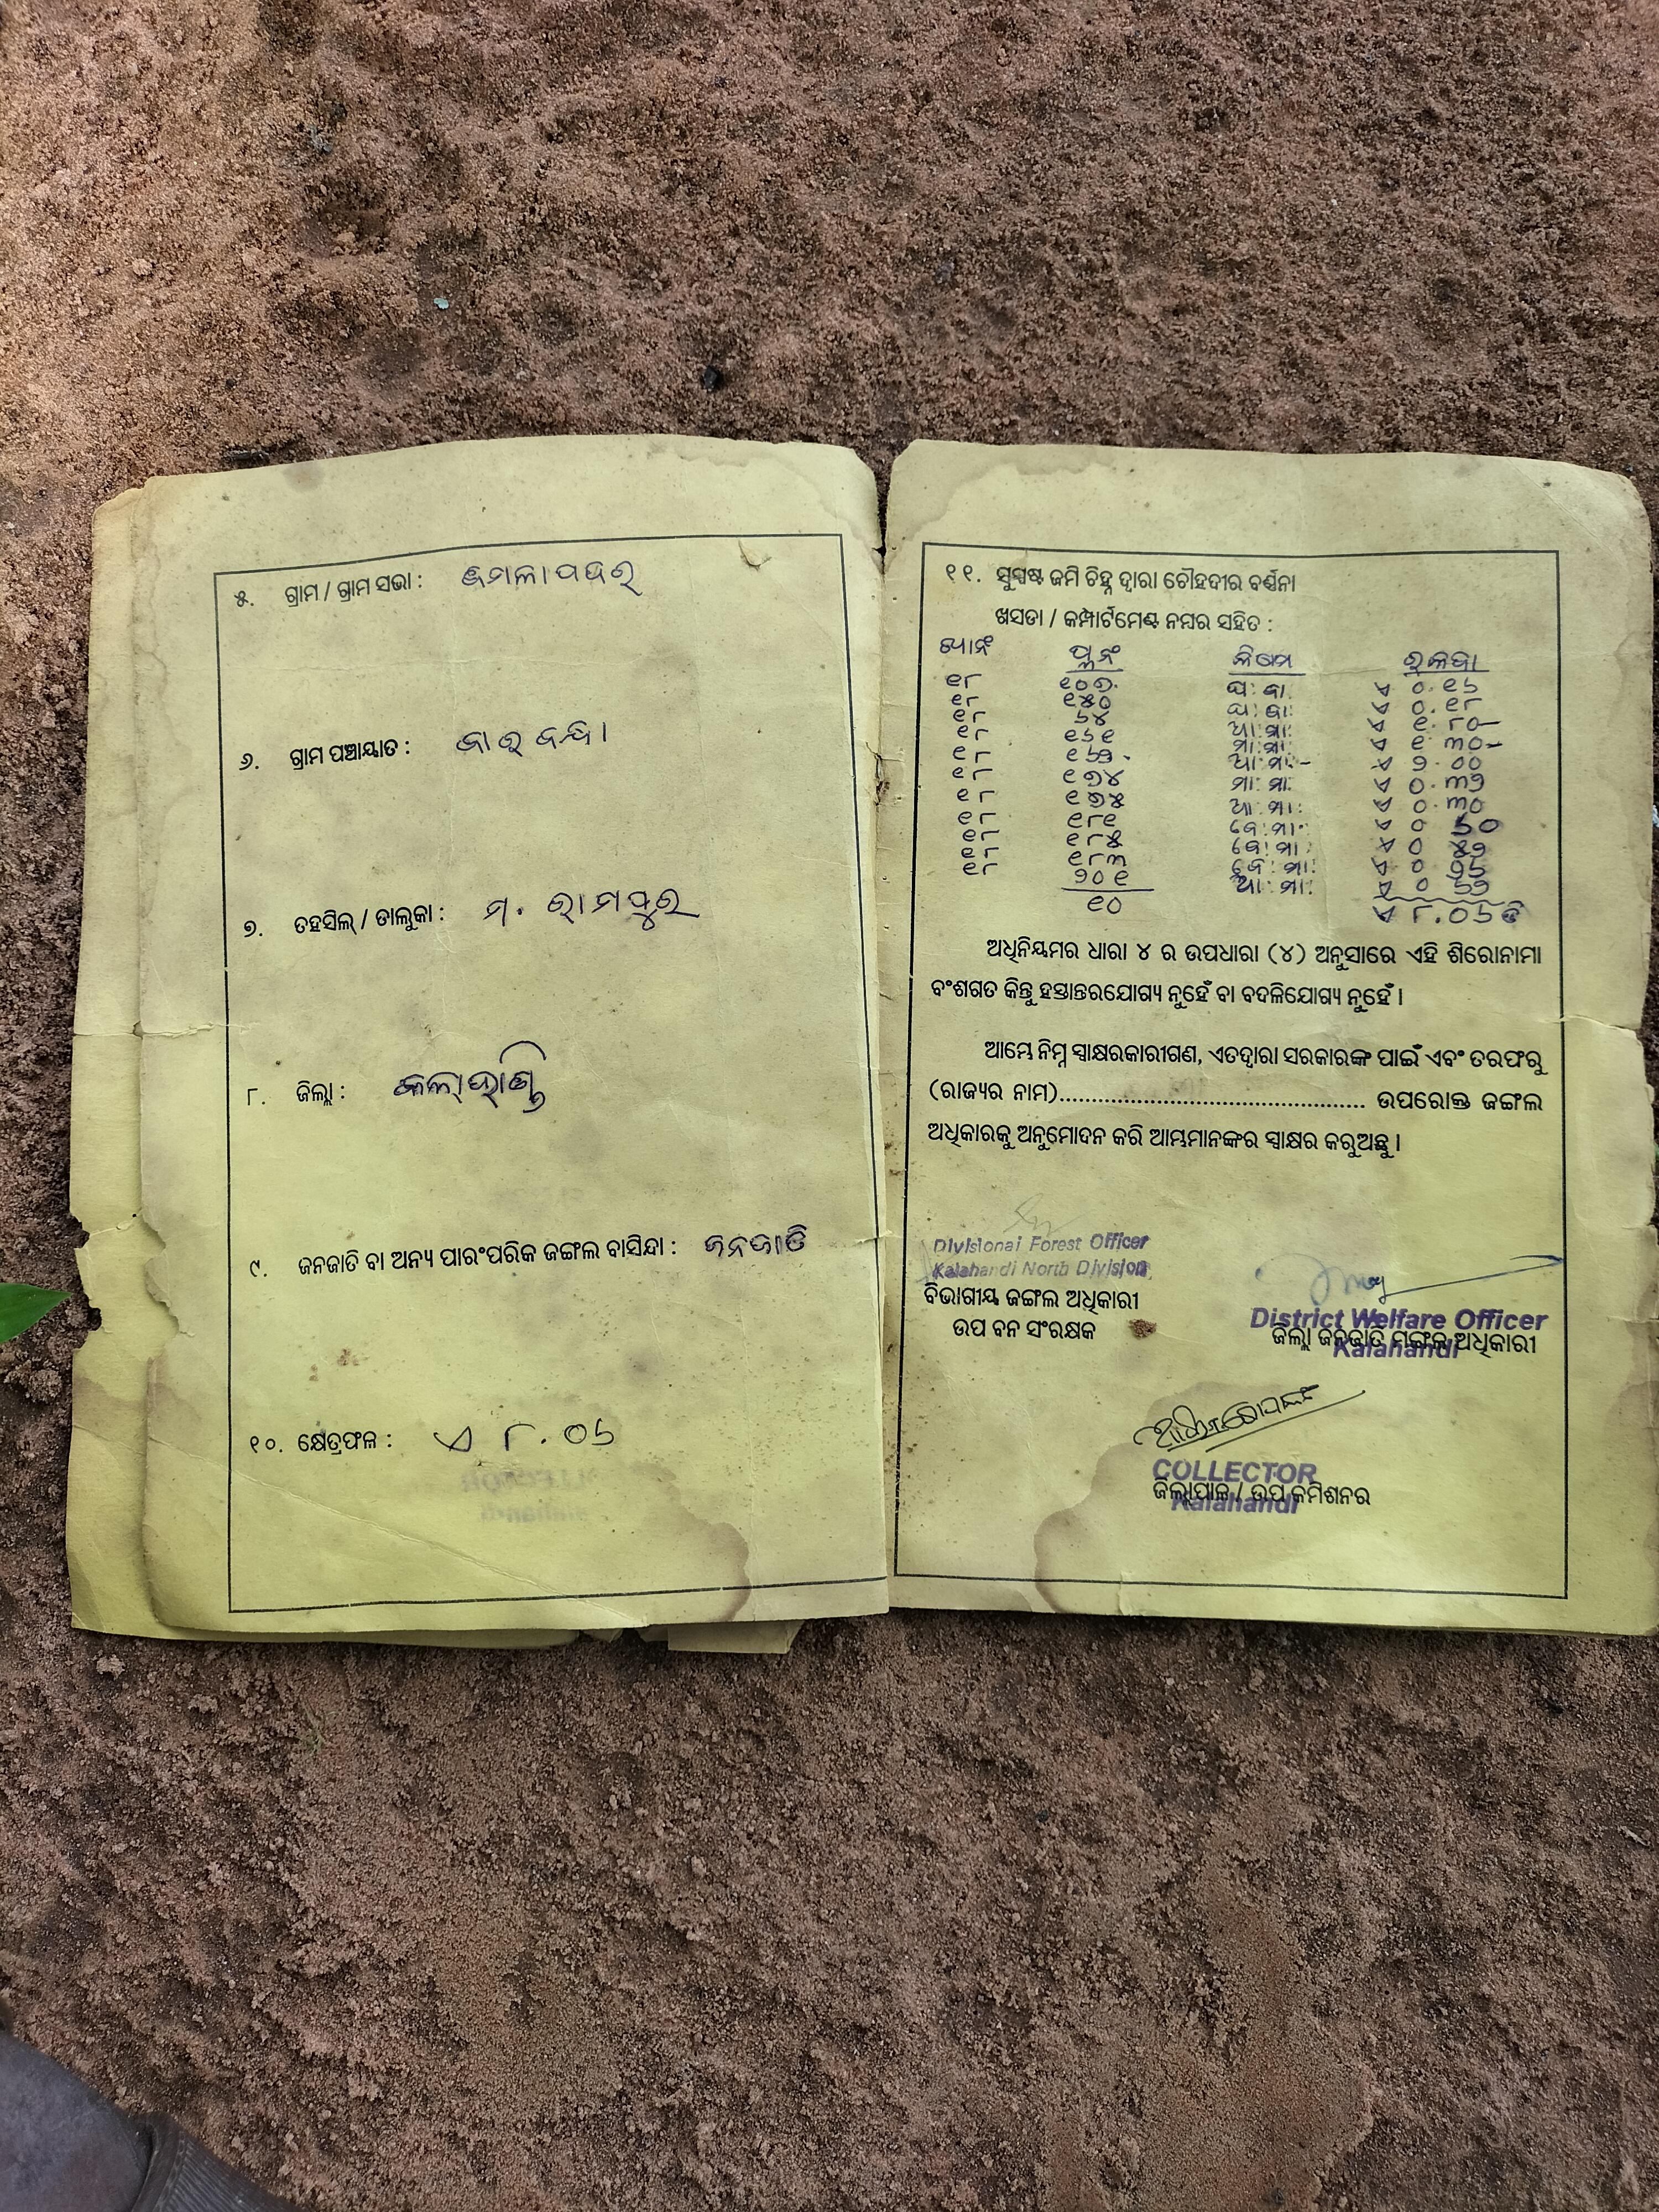 ୫. ଗ୍ରାମ / ଗ୍ରାମ ସଭା : ଜମଲାପଦର
୬. ଗ୍ରାମ ପଞ୍ଚାୟାତ :
୭. ତହସିଲ୍ / ତାଲୁକା : ମ. ରାମପୁର
୮. ଜିଲ୍ଲା : କଳାହାଣ୍ଡି
୯. ଜନଜାତି ବା ଅନ୍ୟ ପାରଂପରିକ ଜଙ୍ଗଲ ବାସିନ୍ଦା : ଜନଜାତି
୧୦. କ୍ଷେତ୍ରଫଳ : ଏ ୮.୦୬
୧୧. ସୁସ୍ପଷ୍ଟ ଜମି ଚିହ୍ନ ଦ୍ୱାରା ଚୌହଦୀର ବର୍ଣ୍ଣନା
ଖସଡା / କମ୍ପାର୍ଟମେଣ୍ଟ ନମ୍ବର ସହିତ :
ଖ୍ୟାନଂ ପ୍ଲନଂ କିସମ ରକବା
୧୮ ୧୦୭ ଘ: ବା. ଏ ୦.୧୬
୧୮ ୧୫୦ ଘ: ବା: ଏ ୦.୧୮
୧୮ ୬୪ ଆ: ମା: ଏ ୧.୮୦
୧୮ ୧୬୧ ମା: ମା: ଏ ୧.୩୦
୧୮ ୧୬୨ ଆ: ମା: ଏ ୨.୦୦
୧୮ ୧୭୪ ମା: ମା: ଏ ୦.୩୨
୧୮ ୧୭୫ ଆ: ମା: ଏ ୦.୩୦
୧୮ ୧୮୧ ବେ: ମା: ଏ ୦ ୬୦
୧୮ ୧୮୫ ବେ: ମା: ଏ ୦ ୫୨
୧୮ ୧୮୩ ବେ: ମା: ଏ ୦ ୨୬
୧୮ ୨୦୧ ଆ: ମା: ଏ ୦ ୬୨
୧୦ ଏ ୮.୦୬ ଡି
ଅଧିନିୟମର ଧାରା ୪ ର ଉପଧାରା (୪) ଅନୁସାରେ ଏହି ଶିରୋନାମା
ବଂଶଗତ କିନ୍ତୁ ହସ୍ତାନ୍ତରଯୋଗ୍ୟ ନୁହେଁ ବା ବଦଳିଯୋଗ୍ୟ ନୁହେଁ ।
ଆମ୍ଭେ ନିମ୍ନ ସ୍ୱାକ୍ଷରକାରୀଗଣ, ଏତଦ୍ୱାରା ସରକାରଙ୍କ ପାଇଁ ଏବଂ ତରଫରୁ
(ରାଜ୍ୟର ନାମ)............................................... ଉପରୋକ୍ତ ଜଙ୍ଗଲ
ଅଧିକାରକୁ ଅନୁମୋଦନ କରି ଆମ୍ଭମାନଙ୍କର ସ୍ୱାକ୍ଷର କରୁଅଛୁ ।
Divisional Forest Officer
Kalahandi North Division
ବିଭାଗୀୟ ଜଙ୍ଗଲ ଅଧିକାରୀ
ଉପ ବନ ସଂରକ୍ଷକ
District Welfare Officer
ଜିଲ୍ଲା ଜନଜାତି ମଙ୍ଗଳ ଅଧିକାରୀ
Kalahandi
COLLECTOR
ଜିଲ୍ଲାପାଳ / ଉପ କମିଶନର
Kalahandi